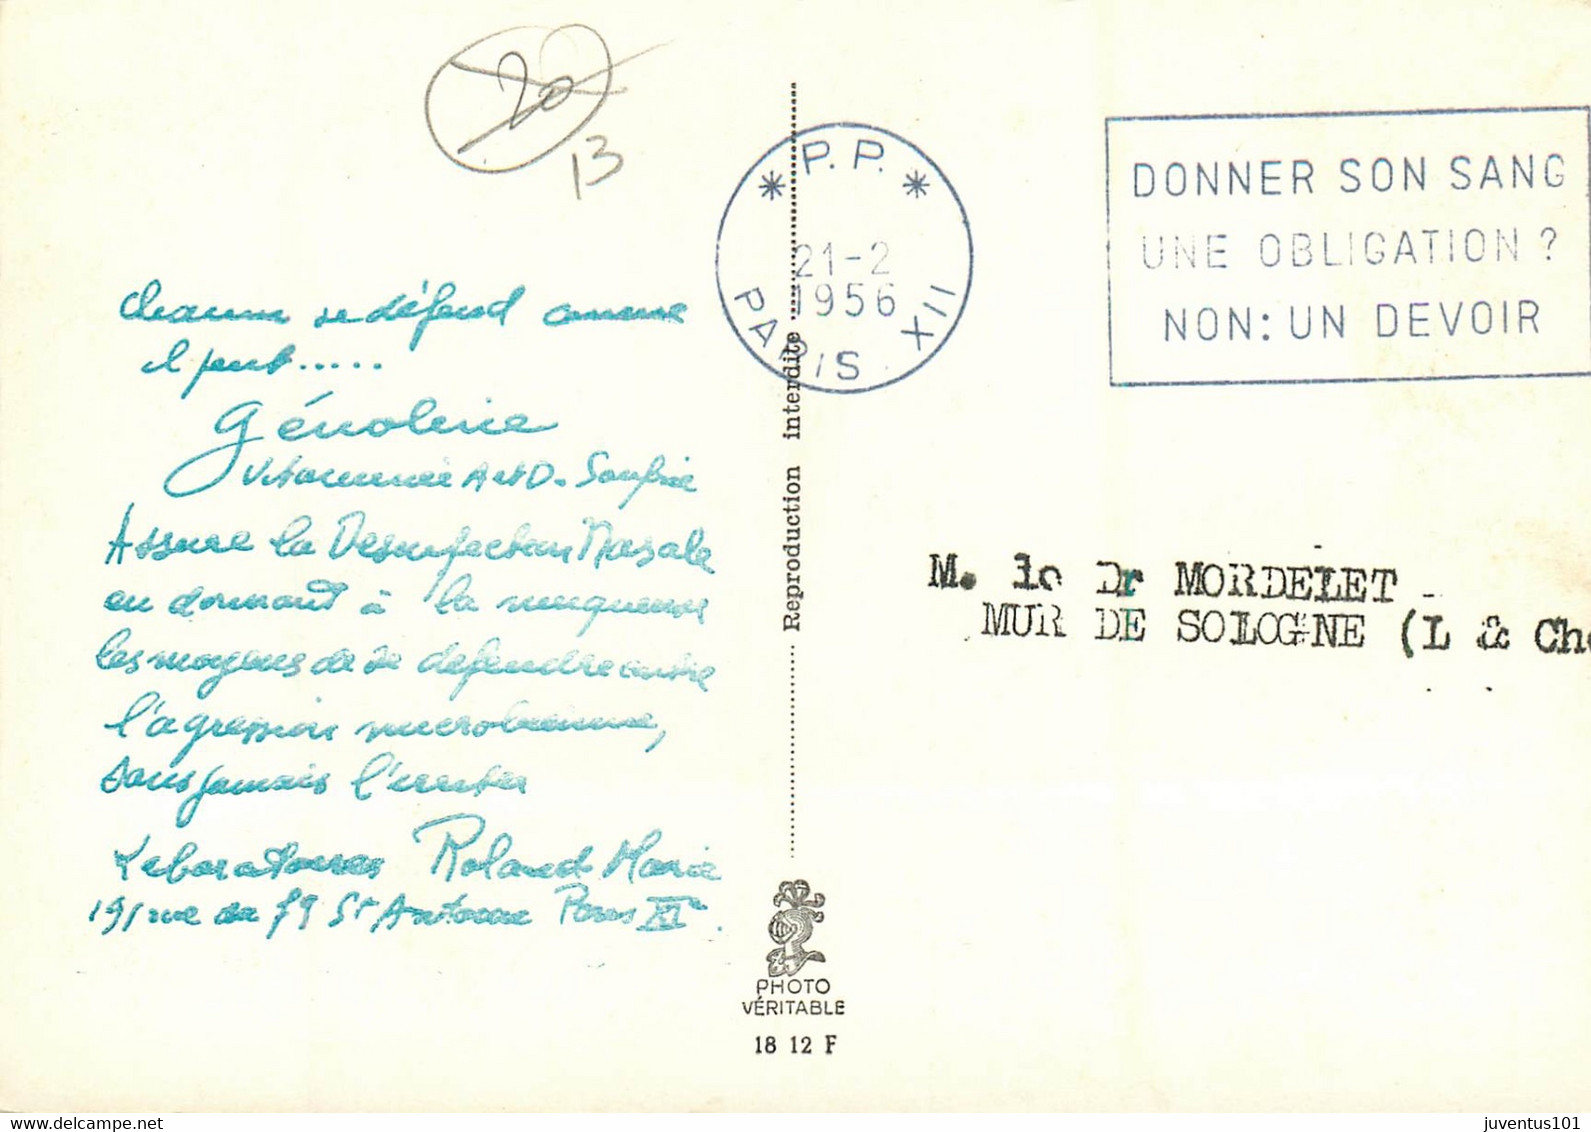 20
13
* P. P. *
21-2
1956
PARIS XII
DONNER SON SANG
UNE OBLIGATION ?
NON: UN DEVOIR
Chacun se défend comme
il peut.....
Génoleine
Vitaminée A et D. Soufrée
Assure la Desinfection Nasale
en donnant à la muqueuse
les moyens de se defendre contre
l'agression microbienne,
sans jamais l'irriter
Laboratoires Roland Marie
191 rue du fg St Antoine Paris XI
Reproduction interdite
M. le Dr MORDELET
MUR DE SOLOGNE (L & Che
PHOTO
VÉRITABLE
18 12 F
juventus101